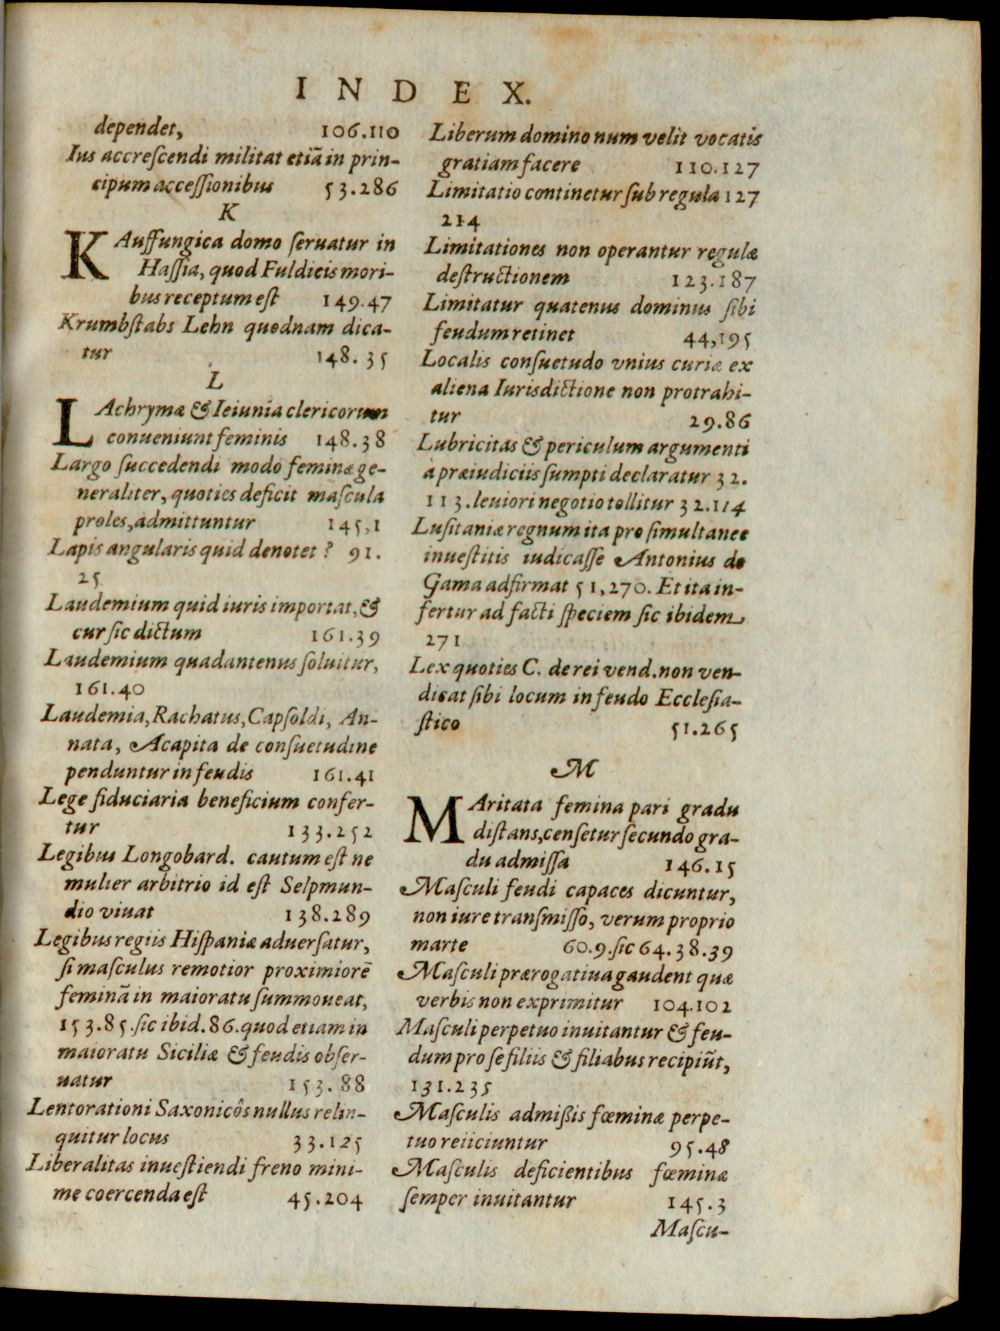 INDEX.
dependet, 106.110
Ius accrescendi militat etiã in prin-
cipum accessionibus 53.286
K
KAuffungica domo seruatur in
Hassia, quod Fuldicis mori-
bus receptum est 149.47
Krumbstabs Lehn quodnam dica-
tur 148.35
L
LAchrymæ & Ieiunia clericorum
conueniunt feminis 148.38
Largo succedendi modo feminæ ge-
neraliter, quoties deficit mascula
proles, admittuntur 145,1
Lapis angularis quid denotet? 91.
25
Laudemium quid iuris importat, &
cur sic dictum 161.39
Laudemium quadantenus soluitur,
161.40
Laudemia, Rachatus, Capsoldi, An-
nata, Acapita de consuetudine
penduntur in feudis 161.41
Lege fiduciaria beneficium confer-
tur 133.252
Legibus Longobard. cautum est ne
mulier arbitrio id est Selpmun-
dio viuat 138.289
Legibus regiis Hispaniæ aduersatur,
si masculus remotior proximiorẽ
feminã in maioratu summoueat,
153.85. sic ibid. 86. quod etiam in
maioratu Siciliæ & feudis obser-
uatur 153.88
Lentorationi Saxonicôs nullus relin-
quitur locus 33.125
Liberalitas inuestiendi freno mini-
me coercenda est 45.204
Liberum domino num velit vocatis
gratiam facere 110.127
Limitatio continetur sub regula 127
214
Limitationes non operantur regulæ
destructionem 123.187
Limitatur quatenus dominus sibi
feudum retinet 44,195
Localis consuetudo vnius curiæ ex
aliena Iurisdictione non protrahi-
tur 29.86
Lubricitas & periculum argumenti
à præiudiciis sumpti declaratur 32.
113. leuiori negotio tollitur 32.114
Lusitaniæ regnum ita pro simultanee
inuestitis iudicasse Antonius de
Gama adfirmat 51,270. Et ita in-
fertur ad facti speciem sic ibidem
271
Lex quoties C. de rei vend. non ven-
dicat sibi locum in feudo Ecclesia-
stico 51.265
M
MAritata femina pari gradu
distans, censetur secundo gra-
du admissa 146.15
Masculi feudi capaces dicuntur,
non iure transmisso, verum proprio
marte 60.9. sic 64.38.39
Masculi prærogatiua gaudent quæ
verbis non exprimitur 104.102
Masculi perpetuo inuitantur & feu-
dum pro se filiis & filiabus recipiũt,
131.235
Masculis admißis fœminæ perpe-
tuo reiiciuntur 95.48
Masculis deficientibus fœminæ
semper inuitantur 145.3
Mascu-